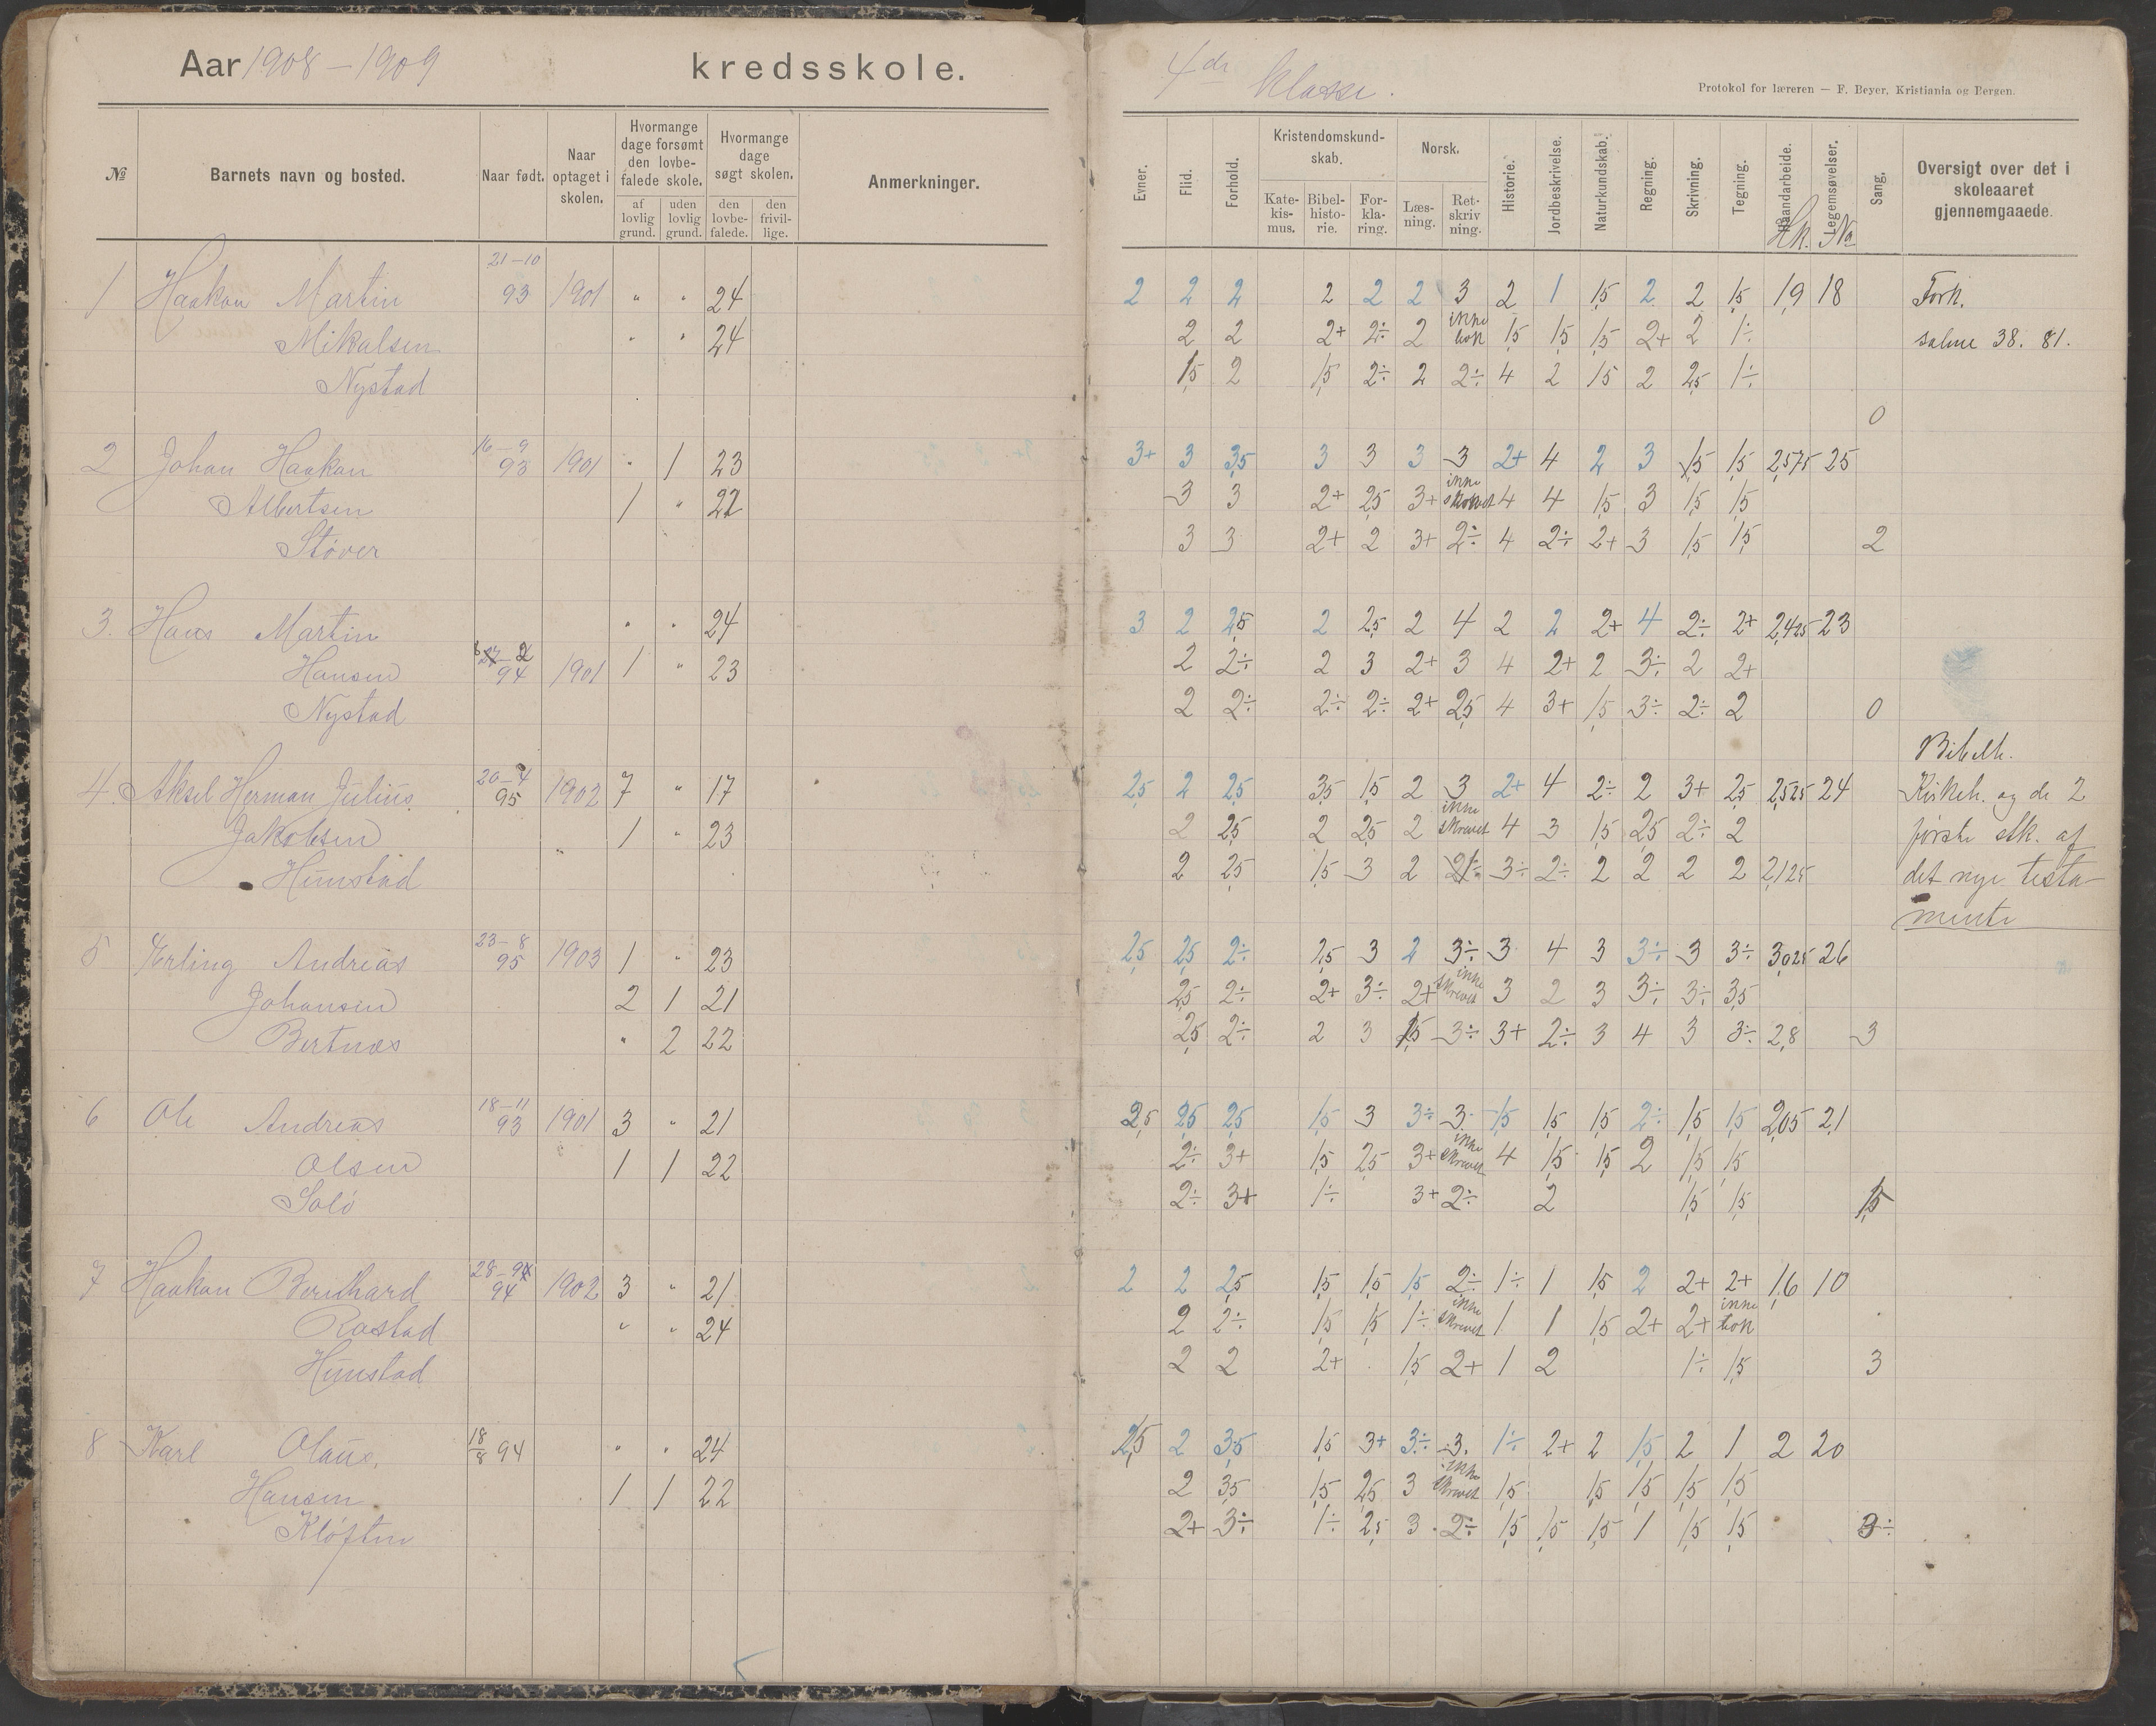 Aar 1908 – 1909 kredsskole. 4de klasse.
Protokol for læreren — F. Beyer, Kristiania og Bergen.
№ Barnets navn og bosted. Naar født. Naar optaget i skolen. Hvormange dage forsømt den lovbefalede skole. af lovlig grund. uden lovlig grund. Hvormange dage søgt skolen. den lovbefalede. den frivillige. Anmerkninger.
Evner. Flid. Forhold. Kristendomskundskab. Katekismus. Bibelhistorie. Forklaring. Norsk. Læsning. Retskrivning. Historie. Jordbeskrivelse. Naturkundskab. Regning. Skrivning. Tegning. Haandarbeide. Legemsøvelser. Sang. Oversigt over det i skoleaaret gjennemgaaede.
Hk. No
21–10
1 Haakon Martin 93 1901 " " 24 2 2 2 2 2 2 3 2 1 1,5 2 2 1,5 1,9 18 Fork.
Mikalsen " " 24 2 2 2+ 2÷ 2 ikke bok 1,5 1,5 1,5 2+ 2 1÷ salme 38. 81.
Nystad 1,5 2 1,5 2÷ 2 2÷ 4 2 1,5 2 2,5 1÷
0
16–9
2 Johan Haakon 93 1901 " 1 23 3+ 3 3,5 3 3 3 3 2+ 4 2 3 1,5 1,5 2,575 25
Albertsen 1 " 22 3 3 2+ 2,5 3+ ikke skrevet 4 4 1,5 3 1,5 1,5
Støver 3 3 2+ 2 3+ 2÷ 4 2÷ 2+ 3 1,5 1,5 2
3. Hans Martin " " 24 3 2 2,5 2 2,5 2 4 2 2 2+ 4 2÷ 2+ 2,425 23
Hansen 94 1901 1 " 23 2 2÷ 2 3 2+ 3 4 2+ 2 3÷ 2 2+
Nystad 2 2÷ 2÷ 2÷ 2+ 2,5 4 3+ 1,5 3÷ 2÷ 2 0
Bibelh.
20–4
4. Aksel Herman Julius 95 1902 7 " 17 2,5 2 2,5 3,5 1,5 2 3 2+ 4 2÷ 2 3+ 2,5 2,525 24 Kirkeh. og de 2
Jakobsen 1 " 23 2 2,5 2 2,5 2 ikke skrevet 4 3 1,5 2,5 2÷ 2 første stk. af
Hunstad 2 2,5 1,5 3 2 3÷ 2÷ 2 2 2 2 2,125 det nye testa-
mente
23–8
5 Erling Andreas 95 1903 1 " 23 2,5 2,5 2÷ 2,5 3 2 3÷ 3 4 3 3÷ 3 3÷ 3,025 26
Johansen 2 1 21 2,5 2÷ 2+ 3÷ 2+ ikke skrevet 3 2 3 3÷ 3÷ 3,5
Bertnæs " 2 22 2,5 2÷ 2 3 1,5 3÷ 3+ 2÷ 3 4 3 3÷ 2,8 3
18–11
6 Ole Andreas 93 1901 3 " 21 2,5 2,5 2,5 1,5 3 3÷ 3 1,5 1,5 1,5 2÷ 1,5 1,5 2,05 21
Olsen 1 1 22 2÷ 3+ 1,5 2,5 3+ ikke skrevet 4 1,5 1,5 2 1,5 1,5
Solö 2÷ 3+ 1÷ 3+ 2÷ 2 1,5 1,5 1,5
7 Haakon Bernhard 94 1902 3 " 21 2 2 2,5 1,5 1,5 1,5 2÷ 1÷ 1 1,5 2 2+ 2+ 1,6 10
Rostad " " 24 2 2÷ 1,5 1,5 1÷ ikke skrevet 1 1 1,5 2+ 2+ ikke bok
Hunstad 2 2 2+ 1,5 2+ 1 2 1÷ 1,5 3
8 Karl Olaus. 18/8 94 " " 24 2,5 2 3,5 1,5 3+ 3÷ 3. 1÷ 2+ 2 1,5 2 1 2 20
Hansen 1 1 22 2 3,5 1,5 2,5 3 ikke skrevet 1,5 1,5 1,5 1,5 1,5
Kløften 2+ 3÷ 1÷ 2,5 3 2÷ 1,5 1,5 1,5 1 1,5 1,5 3÷